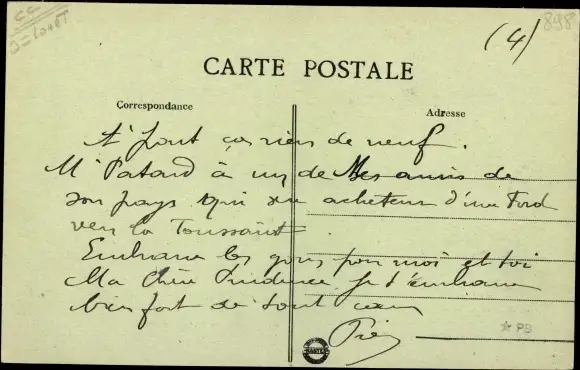 (4)
898
CARTE POSTALE
Correspondance
Adresse
A' part ça rien de neuf.
Mr Patard à un de Mes amis de
son pays qui acheteur d'une Ford
vers la Toussaint
Embrasse les gens pour moi et toi
Ma chère Prudence je t'embrasse
bien fort de tout cœur
★ PB